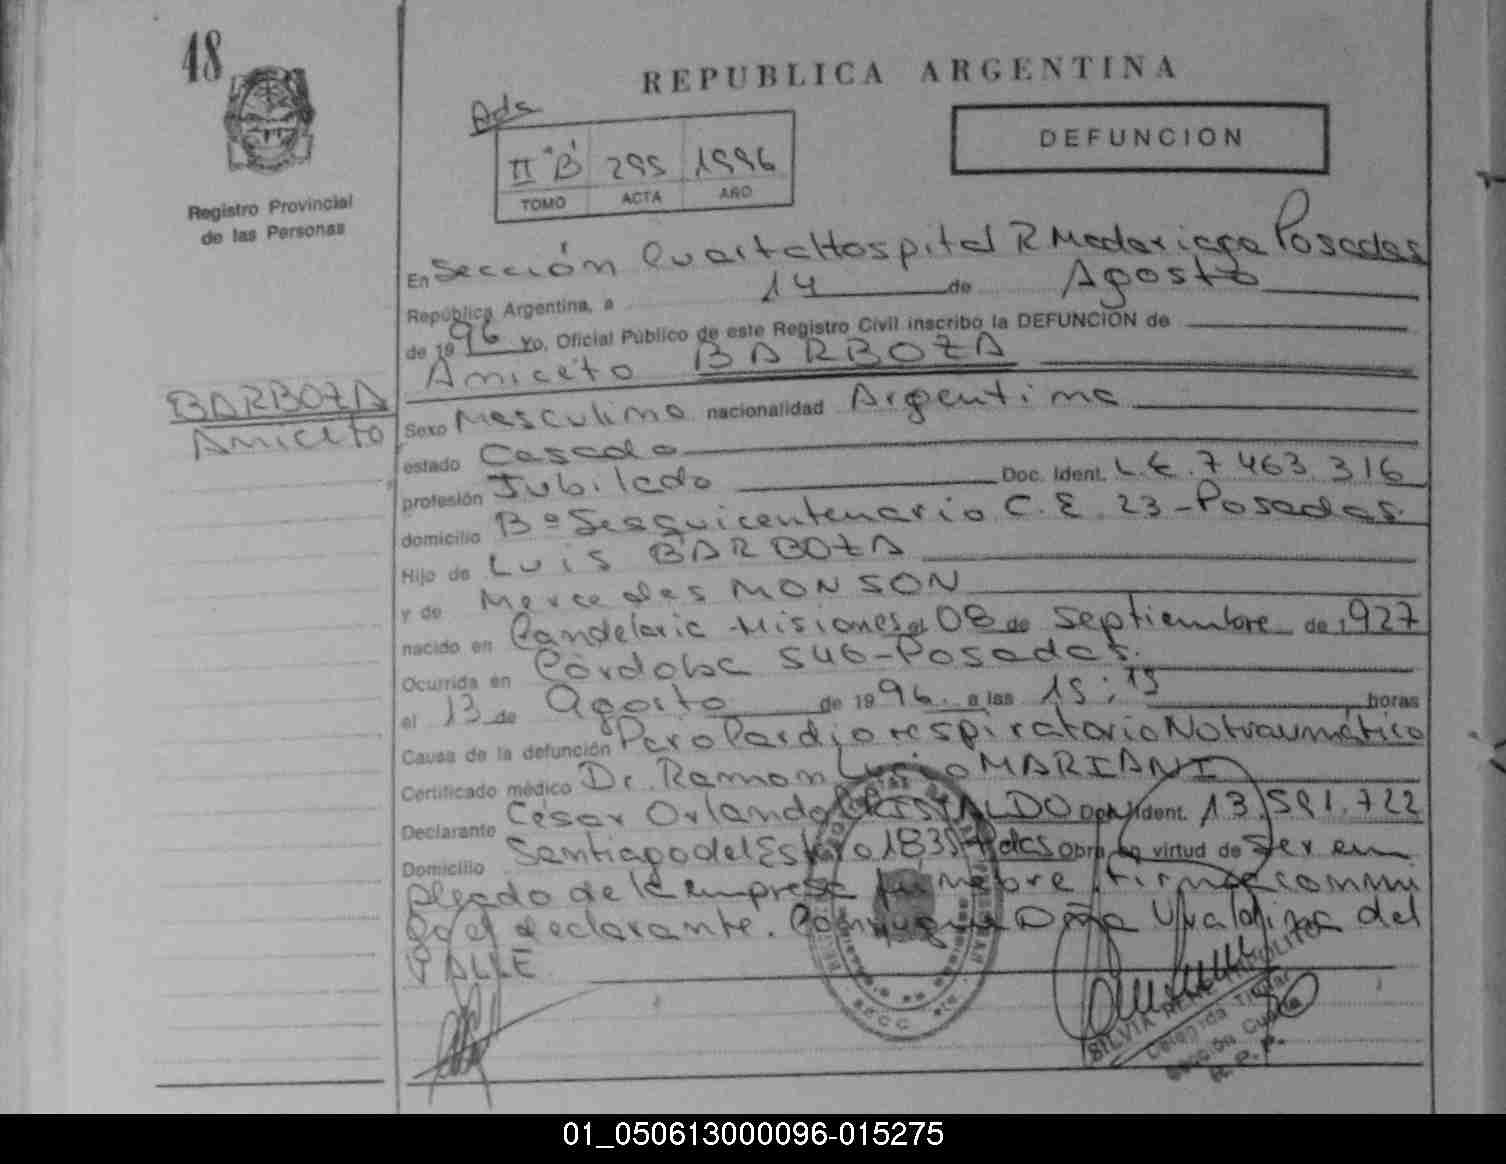 48
REPUBLICA ARGENTINA
Pds
DEFUNCION
II "B" 295 1996
TOMO ACTA AÑO
Registro Provincial
de las Personas
En Sección Cuarta Hospital R Madariaga Posadas
República Argentina, a 14 de Agosto
de 1996 Yo, Oficial Público de este Registro Civil inscribo la DEFUNCION de
Aniceto BARBOZA
BARBOZA
Aniceto
Sexo Masculino nacionalidad Argentina
estado Casado
profesión Jubilado Doc. Ident. L.E. 7 463.316
domicilio Bº Sesquicentenario C.E. 23-Posadas.
Hijo de Luis BARBOZA
y de Mercedes MONSON
nacido en Candelaria-Misiones el 08 de Septiembre de 1927
Ocurrida en Córdoba 546-Posadas.
el 13 de Agosto de 1996. a las 15:15 horas
Causa de la defunción Paro Cardiorespiratorio No traumático
Certificado médico Dr. Ramon Lucio MARIANI
Declarante César Orlando Doc. Ident. 13.591.722
Domicilio Santiago del Estero 1835 Pdas Obra en virtud de ser em
pleado de la empresa fúnebre firma conmi
go el declarante. Conyuge Doña Uvaldina del
VALLE
SILVIA
Delegada Titular
Sección Cuarta
R. P. P.
01_050613000096-015275